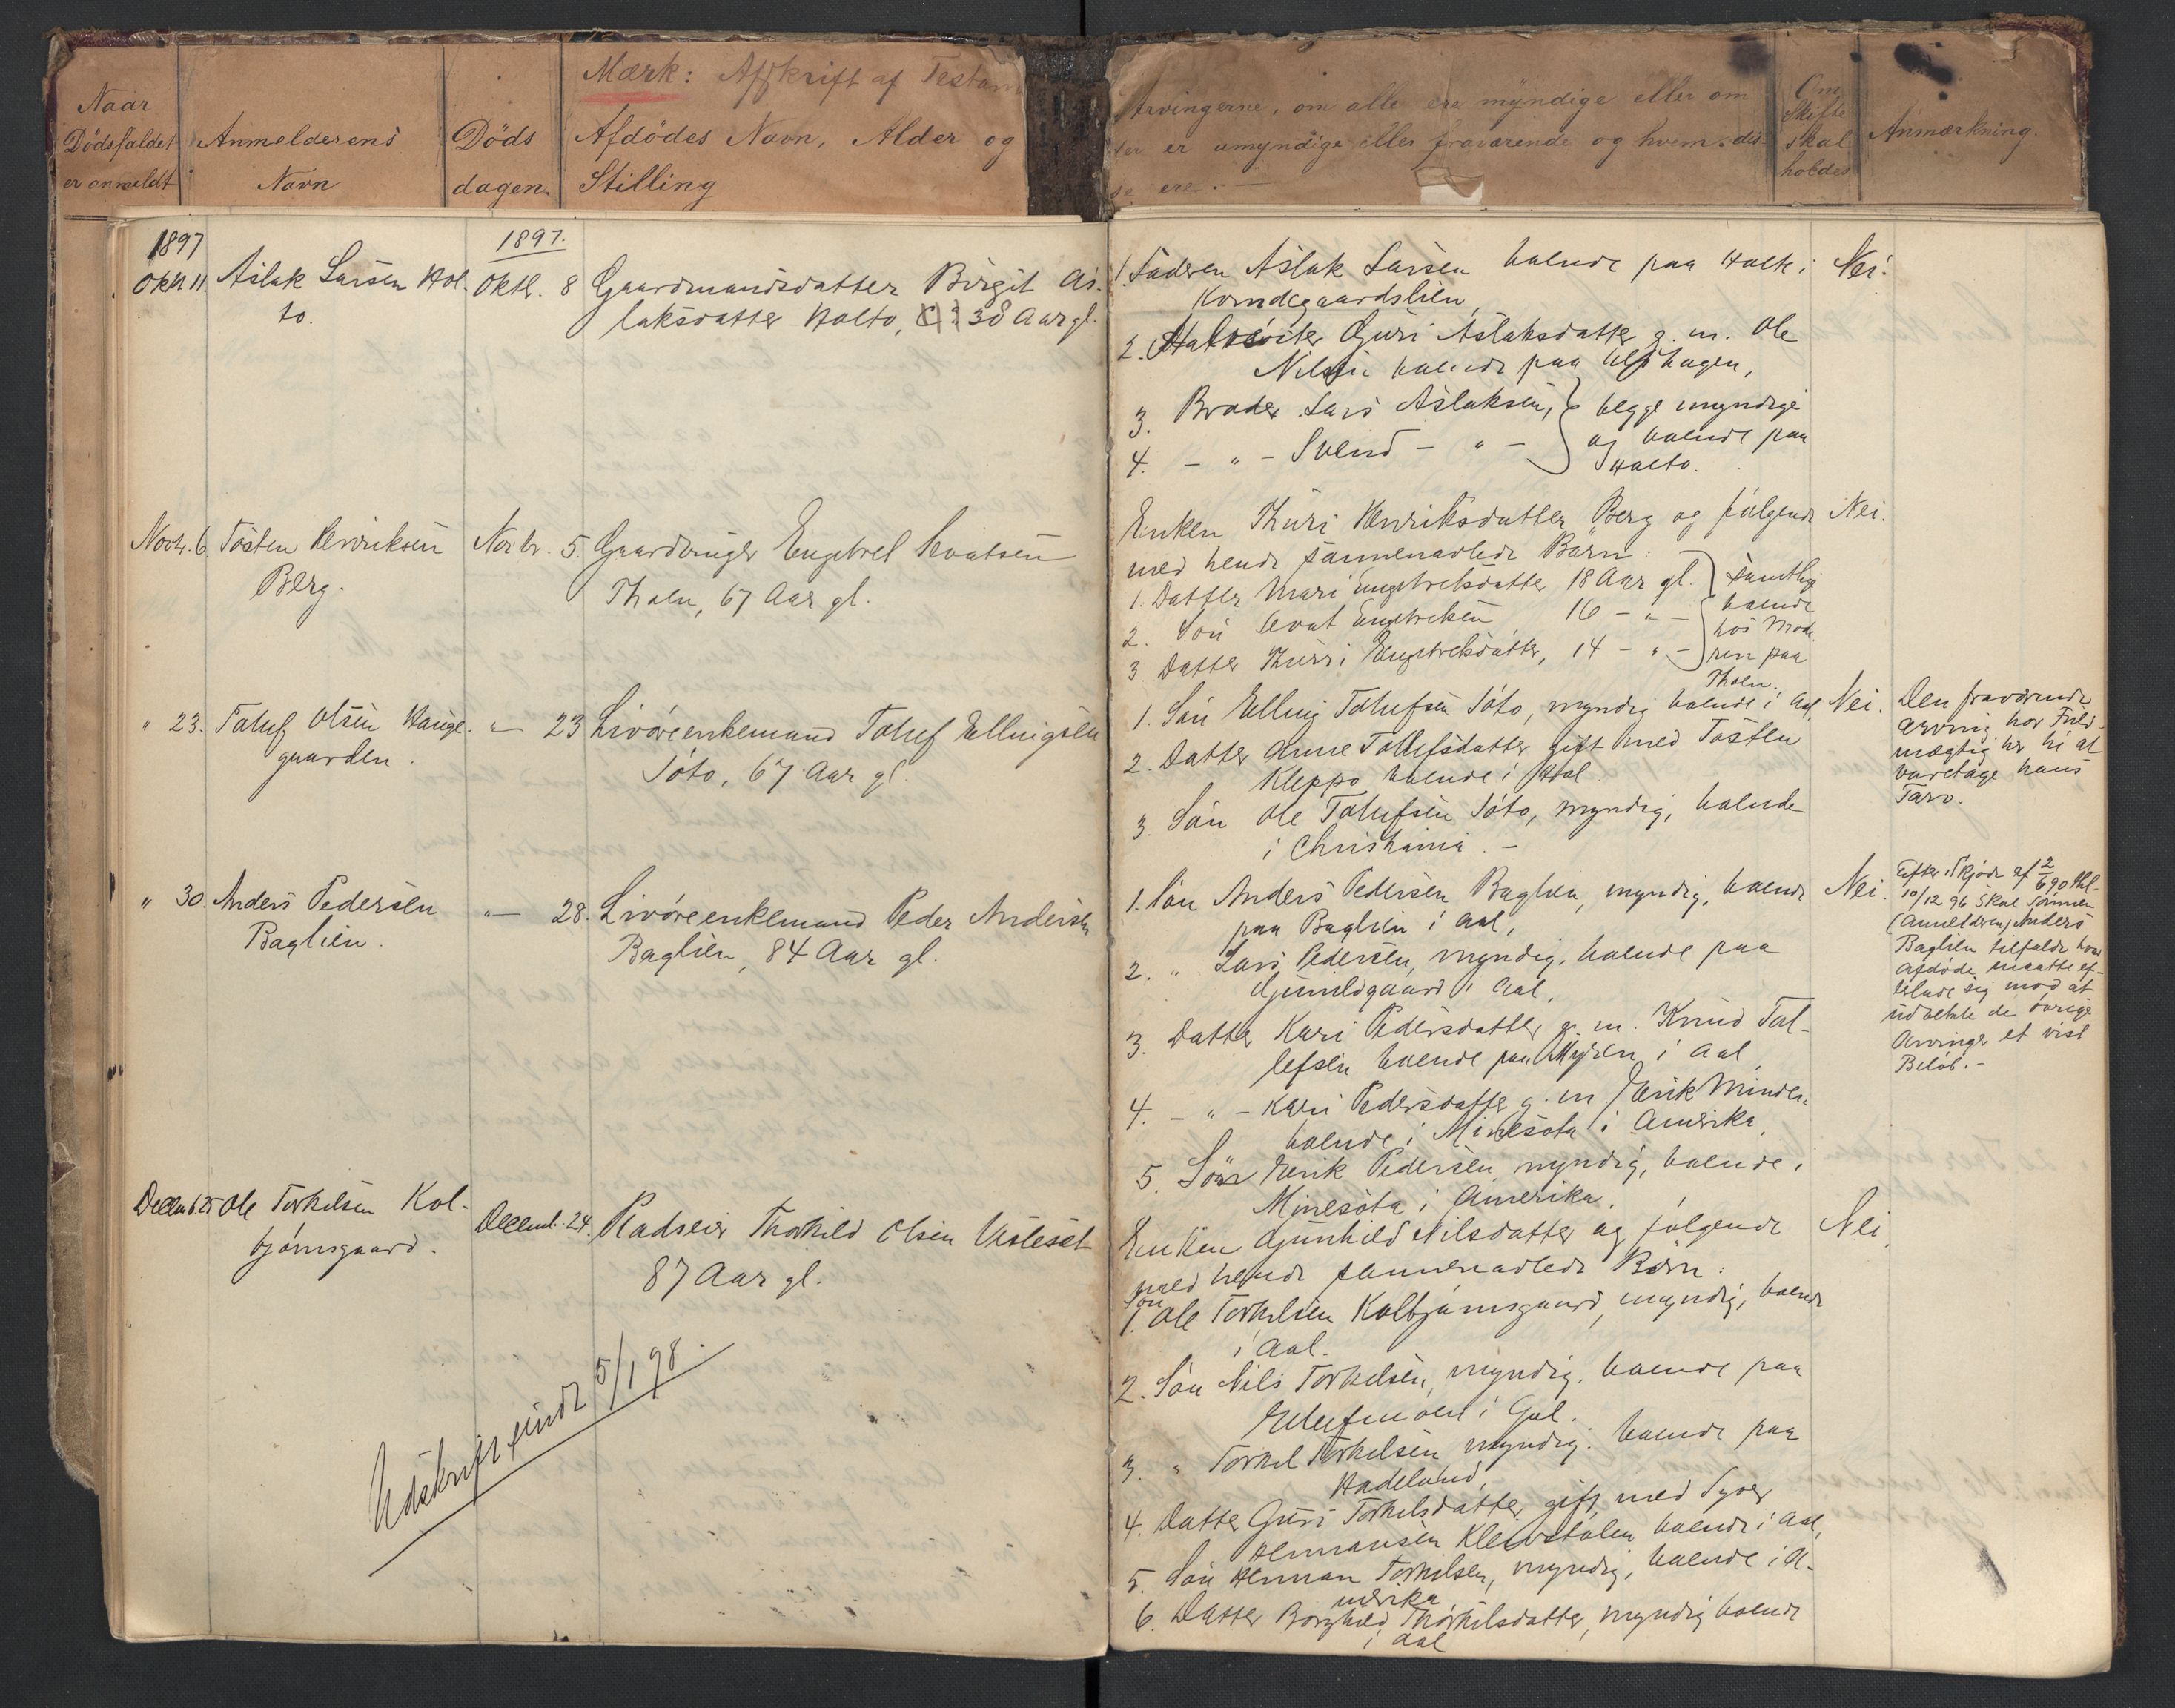 Mærk: Afskrift af Testam
Naar
Dødsfaldet
er anmeldt
Anmelderens
Navn
Döds
dagen.
Afdödes Navn, Alder og
Stilling
Arvingerne, om alle ere myndige eller om
er umyndige eller fraværende og hvem dis-
se ere. —
Om
Skifte
skal
holdes
Anmærkning.
1897
Oktr 11. Aslak Larsen Hol-
to.
1897.
Oktb. 8 Gaardmandsdatter Birgit As-
laksdatter Holto, 38 Aar gl.
1. Faderen Aslak Larsen boende paa Holto i
Kvindegaardslien,
2. Guri Aslaksdatter g. m. Ole
Nilsen boende paa
3. Broder Lars Aslaksen, } begge myndige
4. – " – Svend – " – og boende paa
Holto.
Nei.
Novbr. 6. Tosten Henriksen
Berg.
Novbr. 5. Gaardbruger Engebret Sevatsen
Tholn, 67 Aar gl.
Enken Thuri Henriksdatter Berg og følgende
med hende sammenavlede Børn:
1. Datter Mari Engebretsdatter 18 Aar gl. } samtlige
2. Søn Sevat Engebretsen 16 – " – boende
hos Mode-
3. Datter Thuri Engebretsdatter, 14 – " – ren paa
Tholn.
Nei.
" 23. Toluf Olsen Hauge-
gaarden.
" — 23 Livøreenkemand Toluf Ellingsen
Tóto, 67 Aar gl.
1. Søn Elling Tolufsen Tóto, myndig boende i Aal,
2. Datter Anne Tollefsdatter gift med Tosten
Kleppo boende i Hol.
3. Søn Ole Tolufsen Tóto, myndig, boende
i Christiania. –
Nei.
Den fraværende
Arving har Fuld-
mægtig her til at
varetage hans
Tarv.
" 30. Anders Pedersen
Baglien.
" — 28. Livøreenkemand Peder Andersen
Baglien, 84 Aar gl.
1. Søn Anders Pedersen Baglien, myndig, boende
paa Baglien i Aal,
2. " Lars Pedersen, myndig, boende paa
Gunildgaard i Aal,
3. Datter Kari Pedersdatter g. m. Knud Tol-
lefsen boende paa Myren i Aal
4. – " – Kari Pedersdatter g. m. Erik
boende i Minesota i Amerika,
5. Søn Erik Pedersen myndig, boende i
Minesota i Amerika.
Nei.
Efter Skjøde af 2/6 90 thl.
10/12 96 skal Sønnen
(Anmelderen) Anders
Baglien tilfalde hvad
Afdøde maatte ef-
terlade sig mod at
udbetale de øvrige
Arvinger et vist
Beløb. –
Decemb. 25 Ole Torkilsen Kol-
bjørnsgaard.
Decemb. 24. Pladseier Thorkild Olsen Visteset
87 Aar gl.
Enken Gunhild Nilsdatter og følgende
med hende sammenavlede Børn:
Søn
1. Ole Torkilsen Kolbjørnsgaard, myndig, boende
i Aal.
2. Søn Nils Torkilsen, myndig, boende paa
i Gol.
3. " Torkel Torkilsen myndig, boende paa
Hadeland
4. Datter Guri Torkilsdatter gift med Syver
Hermansen Kleivstølen boende i Aal,
5. Søn Herman Torkilsen, myndig, boende i A-
merika
6. Datter Borghild Thorkilsdatter, myndig boende
i Aal
Nei.
Udskrift sendt 5/1 98.